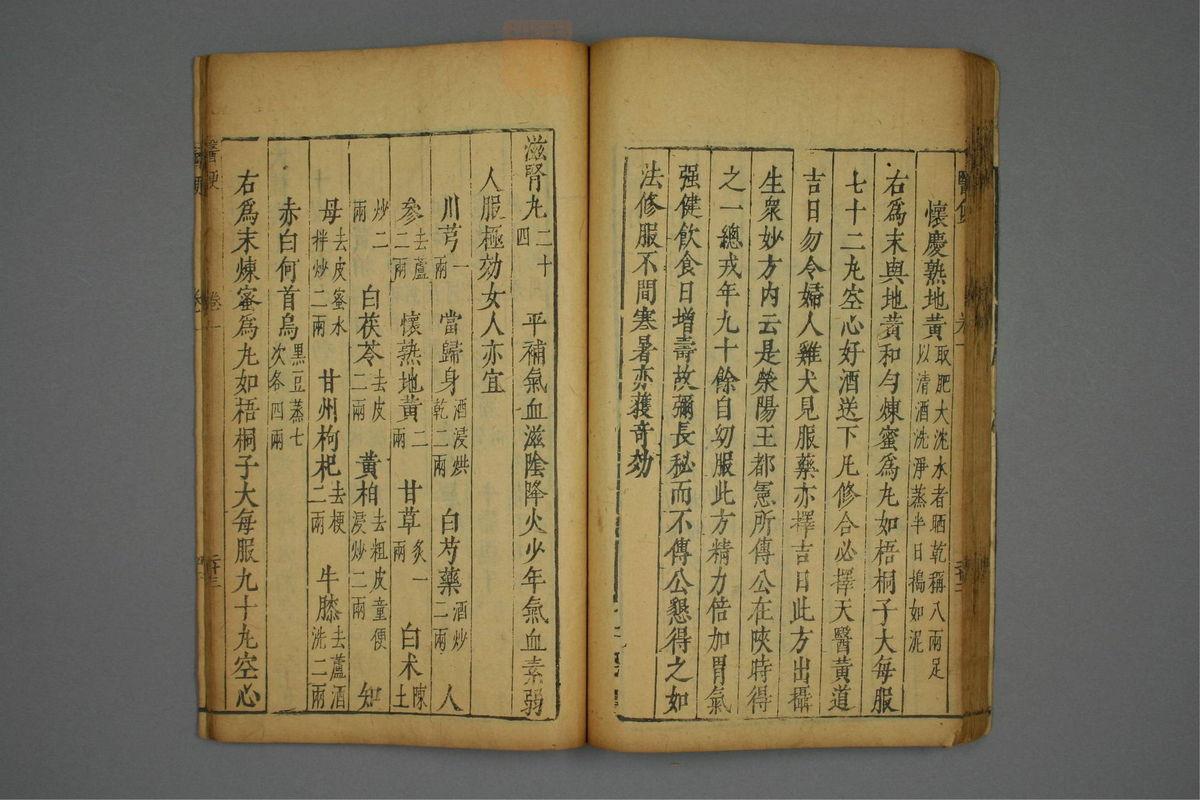 懷慶熟地黃取肥大沈水者晒乾稱八兩足以清酒洗淨蒸半日搗如泥
右爲末與地黃和勻煉蜜爲丸如梧桐子大每服
七十二丸空心好酒送下凡修合必擇天醫黃道
吉日勿令婦人雞犬見服藥亦擇吉日此方出攝
生衆妙方內云是榮陽王都憲所傳公在陜時得
之一總戎年九十餘自幼服此方精力倍加胃氣
强健飲食日增壽故彌長秘而不傳公懇得之如
法修服不間寒暑亦獲奇効
滋腎丸二十四 平補氣血滋陰降火少年氣血素弱
人服極効女人亦宜
川芎一兩 當歸身酒浸烘乾二兩 白芍藥酒炒二兩 人
參去蘆二兩 懷熟地黃二兩 甘草炙一兩 白术陳土
炒二兩 白茯苓去皮二兩 黃柏去粗皮童便浸炒二兩 知
母去皮蜜水拌炒二兩 甘州枸杞去梗二兩 牛膝去蘆酒洗二兩
赤白何首烏黑豆蒸七次各四兩
右爲末煉蜜爲丸如梧桐子大每服九十丸空心
醫便
卷一
二十三